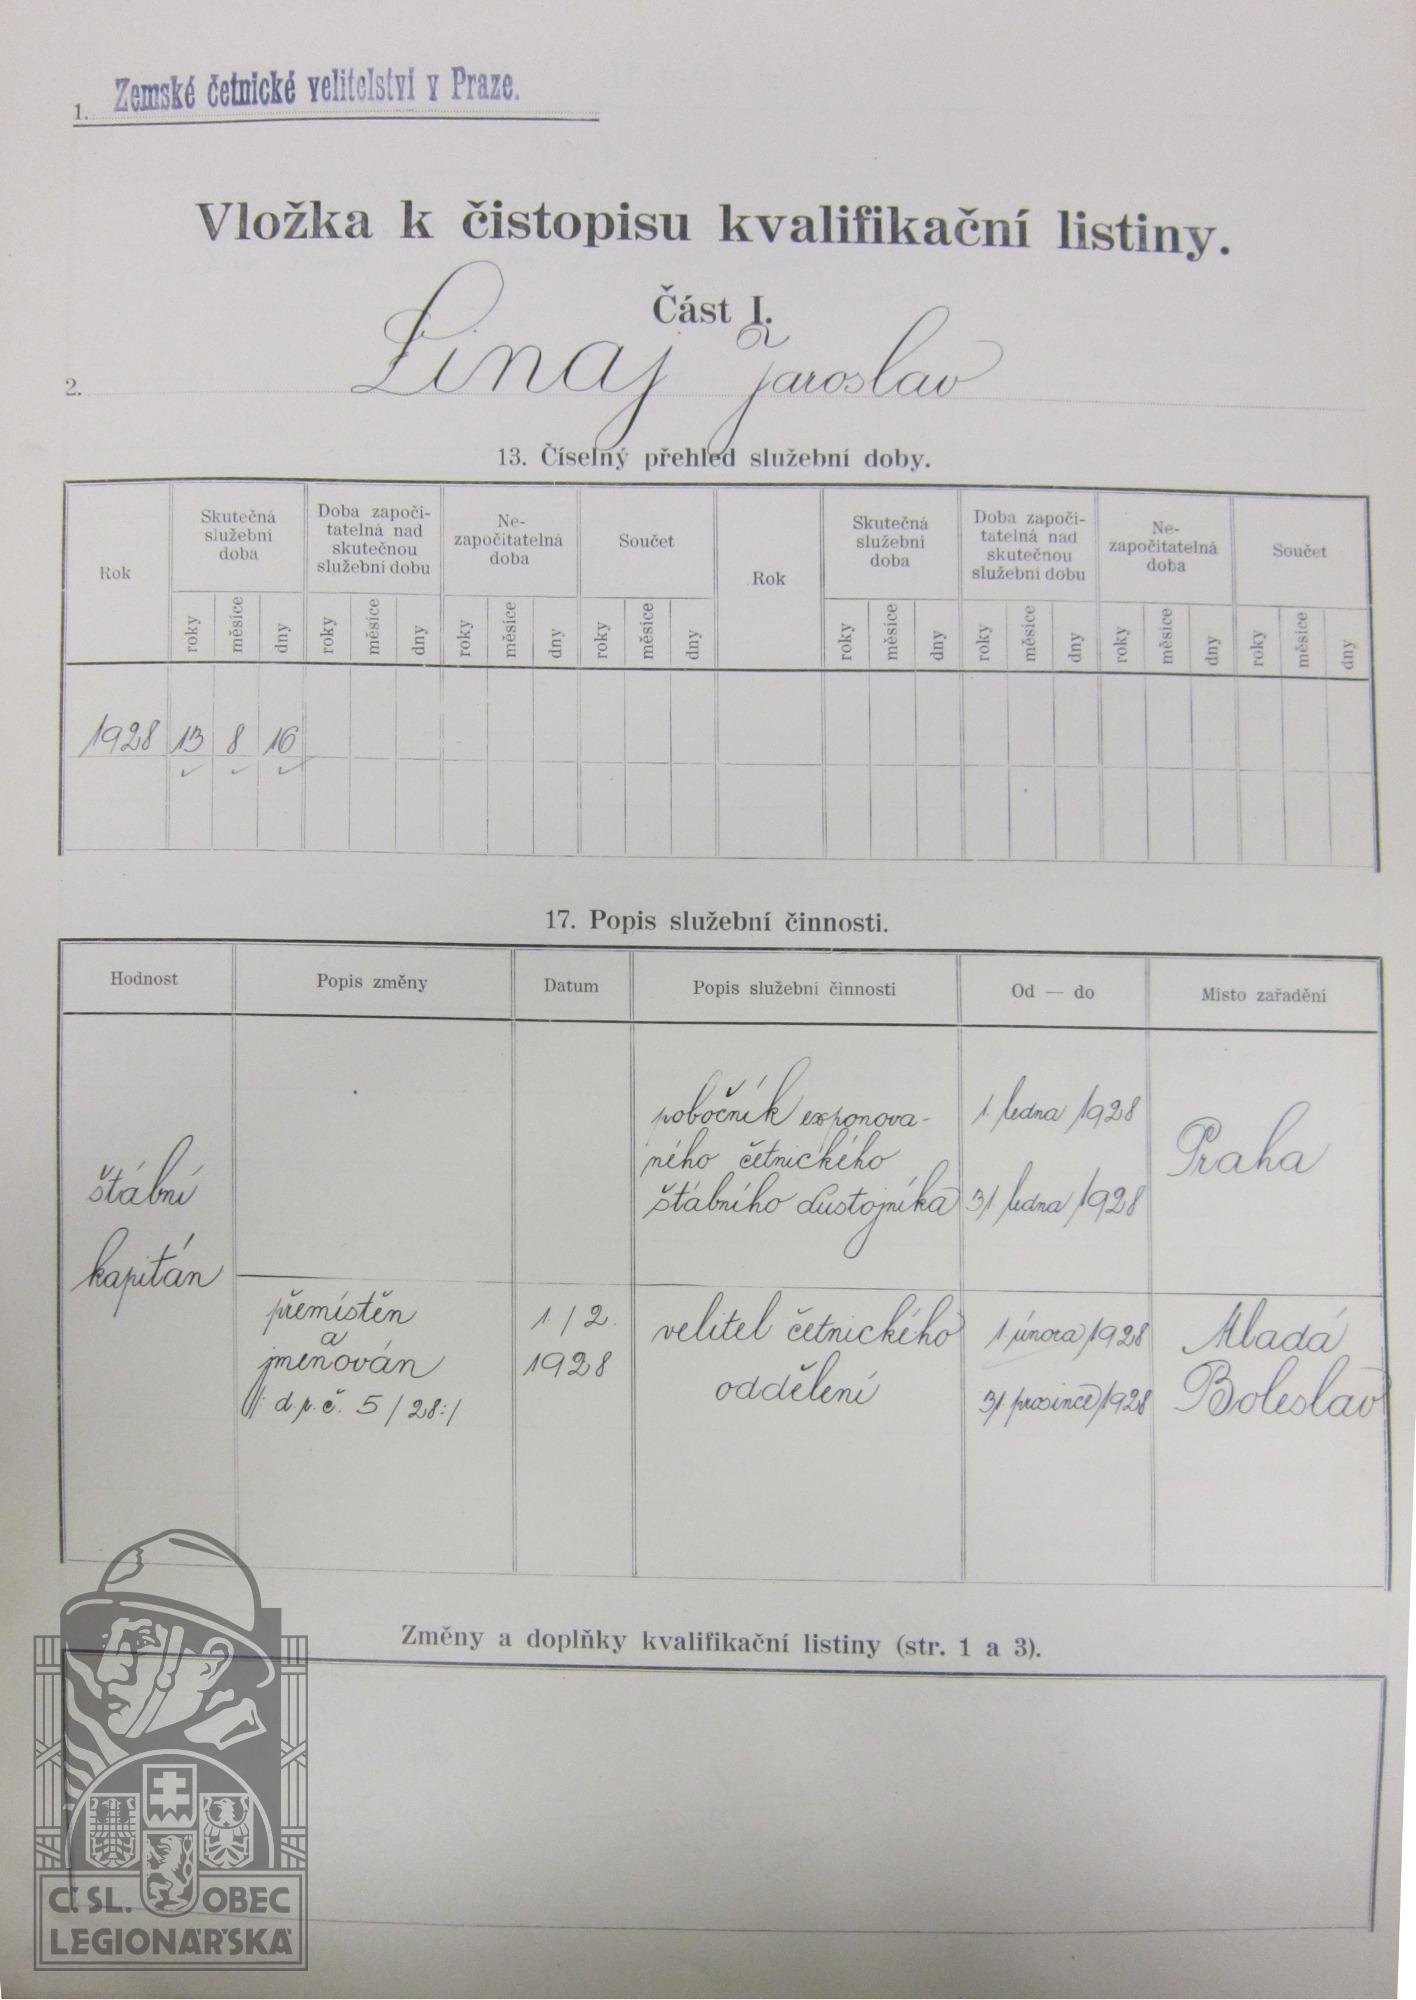 1. Zemské četnické velitelství v Praze.
Vložka k čistopisu kvalifikační listiny.
Část I.
2. Linaj Jaroslav
13. Číselný přehled služební doby.
Rok
Skutečná
služební
doba
Doba započi-
tatelná nad
skutečnou
služební dobu
Ne-
započitatelná
doba
Součet
Rok
Skutečná
služební
doba
Doba započi-
tatelná nad
skutečnou
služební dobu
Ne-
započitatelná
doba
Součet
roky měsíce dny roky měsíce dny roky měsíce dny roky měsíce dny roky měsíce dny roky měsíce dny roky měsíce dny roky měsíce dny
1928 13 8 16
17. Popis služební činnosti.
Hodnost Popis změny Datum Popis služební činnosti Od — do Místo zařadění
štábní
kapitán
pobočník exponova-
ného četnického
štábního důstojníka
1. ledna 1928
31. ledna 1928
Praha
přemístěn
a
jmenován
/: d.p.č. 5/28:/
1./2.
1928
velitel četnického
oddělení
1. února 1928
31. prosince 1928
Mladá
Boleslav
Změny a doplňky kvalifikační listiny (str. 1 a 3).
Č. SL. OBEC
LEGIONÁŘSKÁ